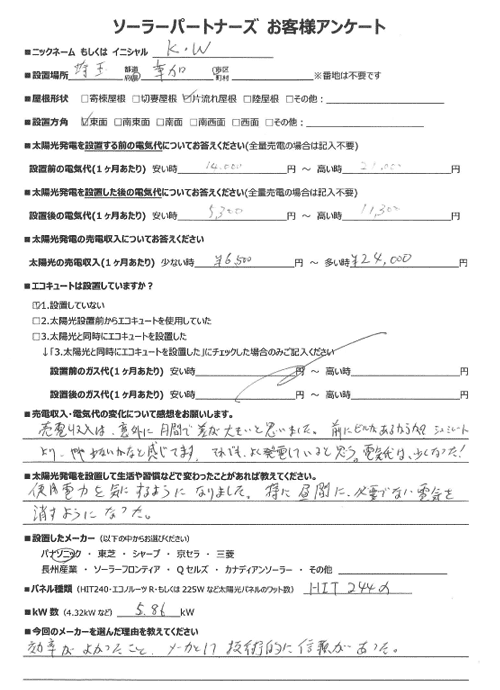 ソーラーパートナーズ お客様アンケート
■ニックネーム もしくは イニシャル K.W
■設置場所 埼玉 都道府県 草加 市区町村 ※番地は不要です
■屋根形状 □寄棟屋根 □切妻屋根 ☑片流れ屋根 □陸屋根 □その他：
■設置方角 ☑東面 □南東面 □南面 □南西面 □西面 □その他：
■太陽光発電を設置する前の電気代についてお答えください(全量売電の場合は記入不要)
設置前の電気代(1ヶ月あたり) 安い時 14,000 円 ～ 高い時 21,000 円
■太陽光発電を設置した後の電気代についてお答えください(全量売電の場合は記入不要)
設置後の電気代(1ヶ月あたり) 安い時 5,300 円 ～ 高い時 11,300 円
■太陽光発電の売電収入についてお答えください
太陽光の売電収入(1ヶ月あたり) 少ない時 ¥6,500 円 ～ 多い時 ¥24,000 円
■エコキュートは設置していますか？
☑1.設置していない
□2.太陽光設置前からエコキュートを使用していた
□3.太陽光と同時にエコキュートを設置した
↓「3.太陽光と同時にエコキュートを設置した」にチェックした場合のみご記入ください
設置前のガス代(1ヶ月あたり) 安い時 円 ～ 高い時 円
設置後のガス代(1ヶ月あたり) 安い時 円 ～ 高い時 円
■売電収入・電気代の変化について感想をお願いします。
売電収入は、意外に月間で差が大きいと思いました。前にビルがあるからか シュミレート
より、やや少ないかなと感じてます。それでも、よく発電していると思う。電気代は、少なくなった!
■太陽光発電を設置して生活や習慣などで変わったことがあれば教えてください。
使用電力を気にするようになりました。特に昼間に、必要でない電気を
消すようになった。
■設置したメーカー (以下の中からお選びください)
パナソニック ・ 東芝 ・ シャープ ・ 京セラ ・ 三菱
長州産業 ・ ソーラーフロンティア ・ Qセルズ ・ カナディアンソーラー ・ その他
■パネル種類 (HIT240・エコノルーツR・もしくは 225W など太陽光パネルのワット数) HIT 244α
■kW 数 (4.32kW など) 5.86 kW
■今回のメーカーを選んだ理由を教えてください
効率がよかったこと、メーカーとして 技術的に信頼があった。